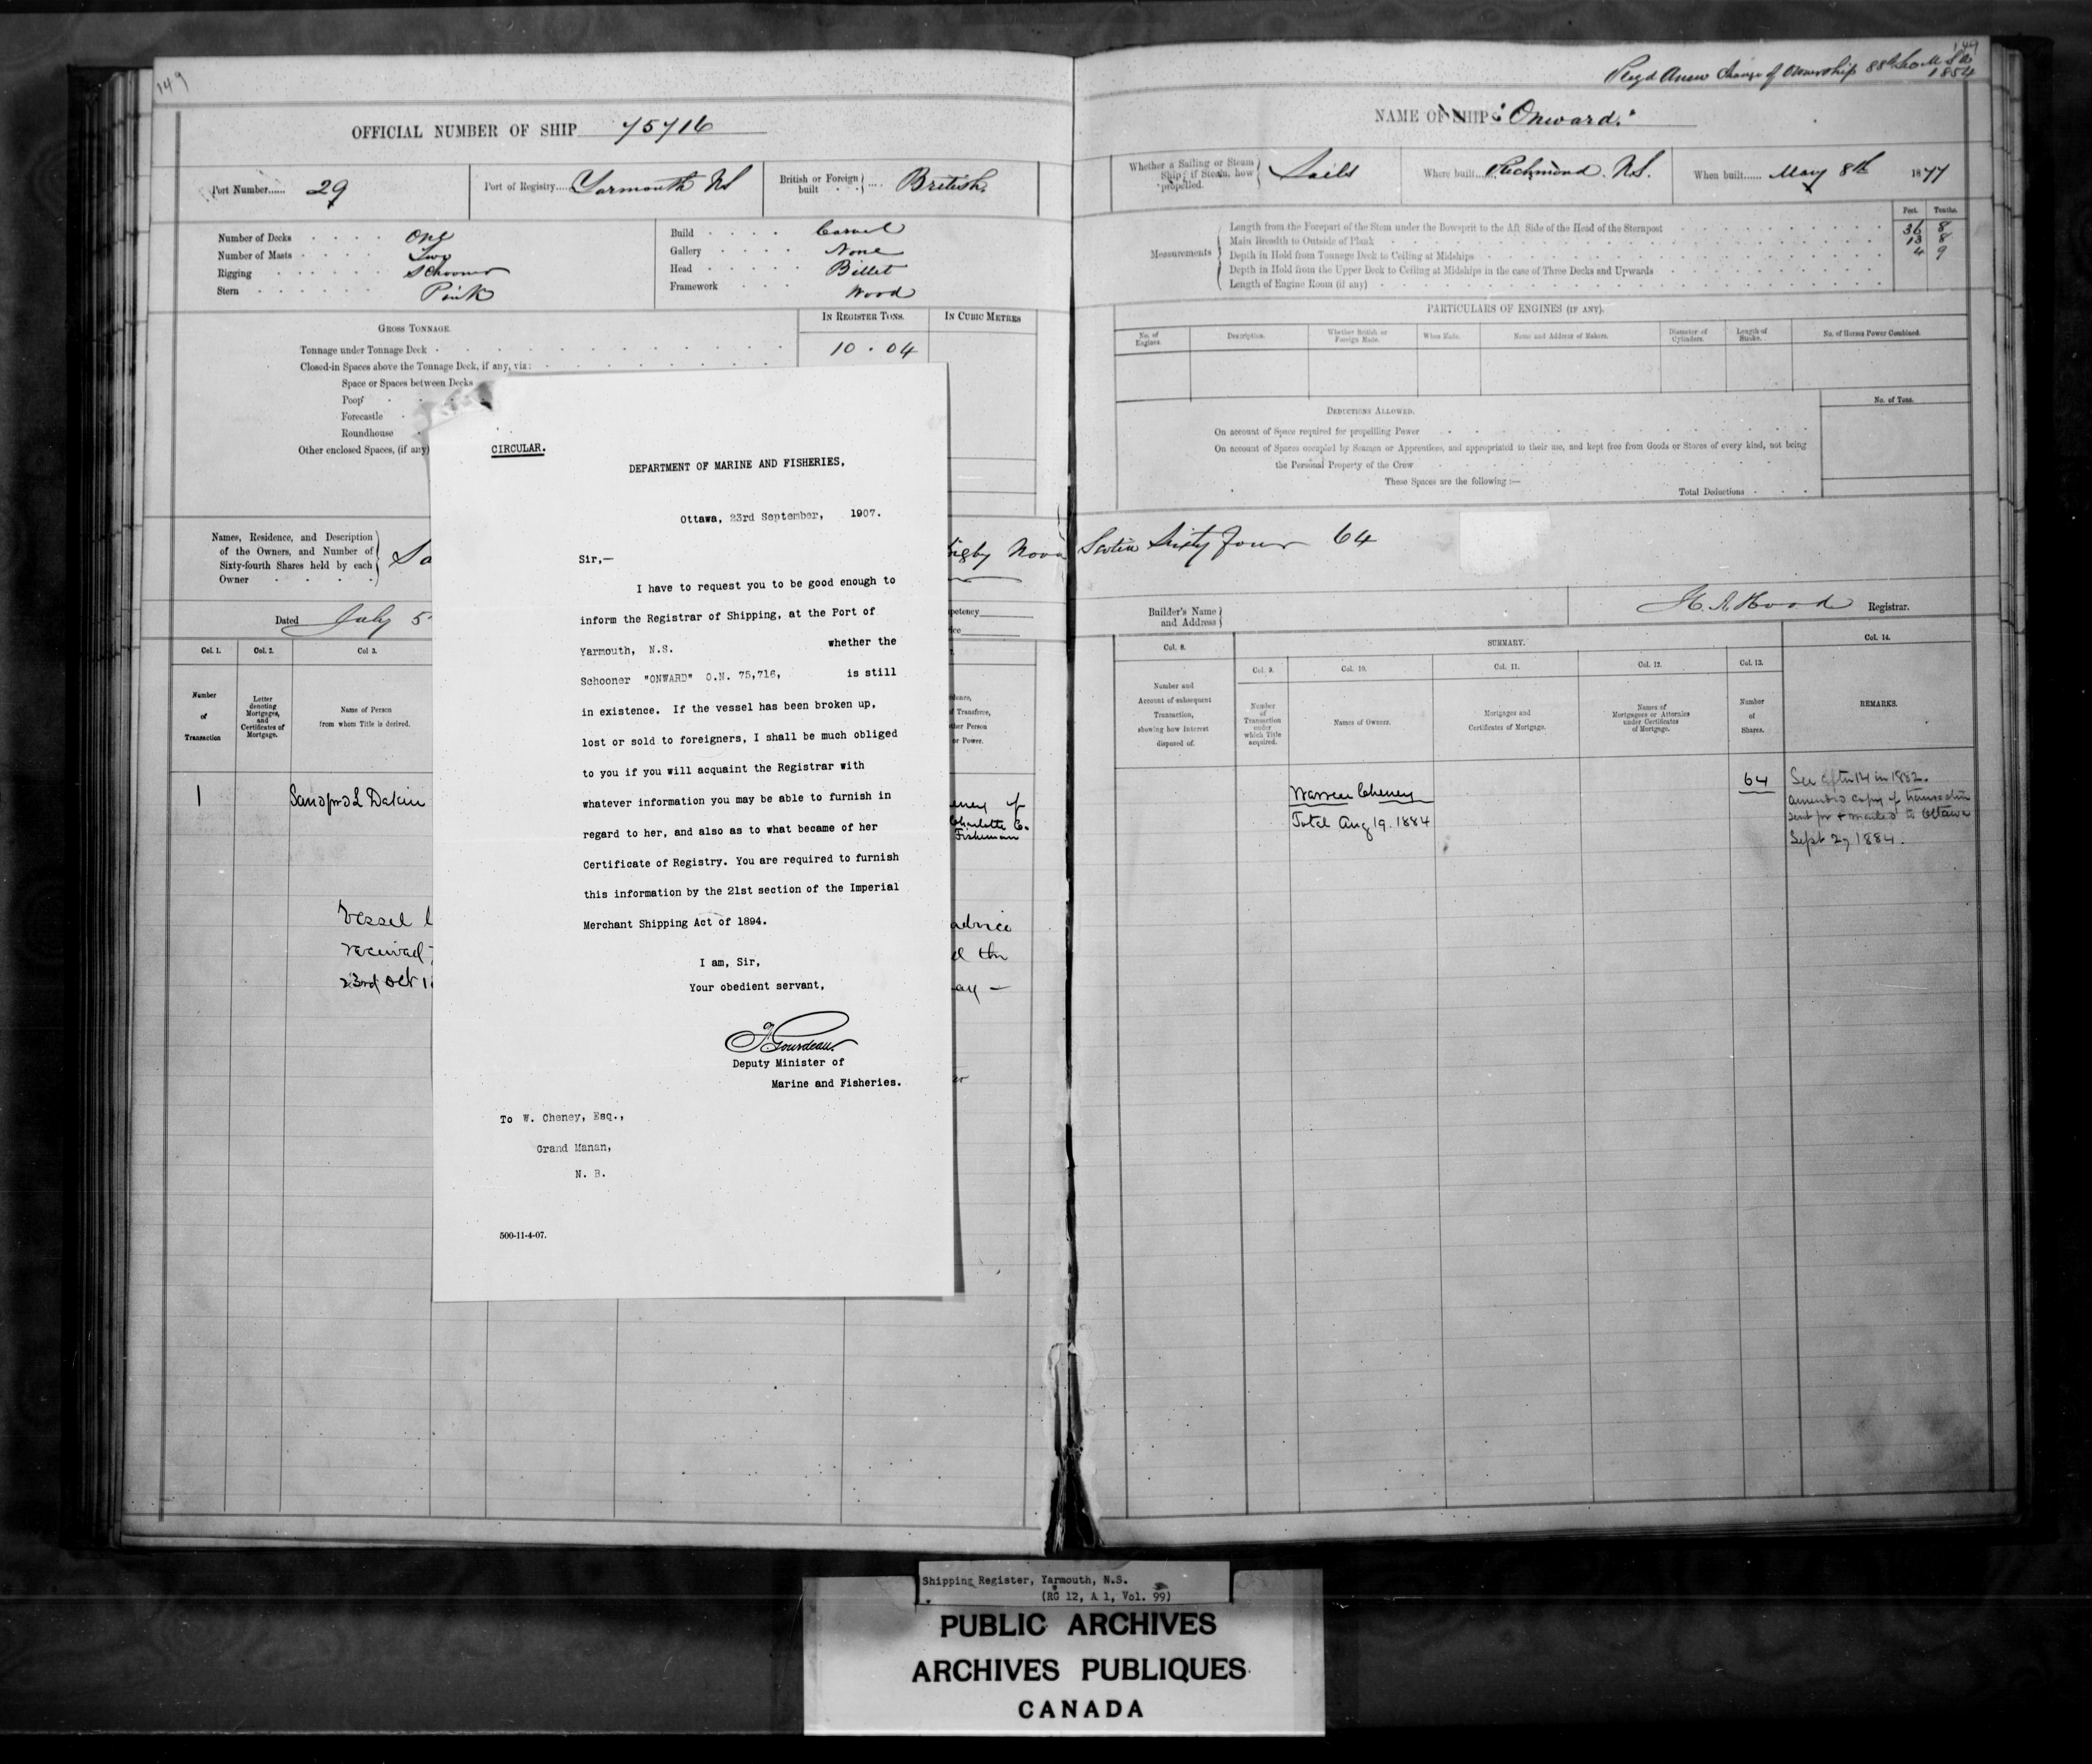 149
OFFICIAL NUMBER OF SHIP 75716
Port Number...... 29
Port of Registry.... Yarmouth NS
British or Foreign built .... British
Number of Decks One
Number of Masts Two
Rigging Schooner
Stern Pink
Build Carvel
Gallery None
Head Billet
Framework Wood
GROSS TONNAGE.
IN REGISTER TONS.
IN CUBIC METRES
Tonnage under Tonnage Deck 10.04
Closed-in Spaces above the Tonnage Deck, if any, viz:
Space or Spaces between Decks
Poop
Forecastle
Roundhouse
Other enclosed Spaces, (if any)
Names, Residence, and Description
of the Owners, and Number of
Sixty-fourth Shares held by each
Owner
Sa
igby Nova
Dated July 5
petency
Col. 1.
Col. 2.
Col 3.
Number
of
Transaction
Letter
denoting
Mortgages,
and
Certificates of
Mortgage.
Name of Person
from whom Title is derived.
dence,
f Transferee,
ther Person
or Power.
1
Sanford L Dakin
eney of
Charlotte Co.
Fisherman
Vessel l
advice
received
d the
23rd Oct 1
ay —
CIRCULAR.
DEPARTMENT OF MARINE AND FISHERIES,
Ottawa, 23rd September, 1907.
Sir,—
I have to request you to be good enough to
inform the Registrar of Shipping, at the Port of
Yarmouth, N.S. whether the
Schooner "ONWARD" O.N. 75,716, is still
in existence. If the vessel has been broken up,
lost or sold to foreigners, I shall be much obliged
to you if you will acquaint the Registrar with
whatever information you may be able to furnish in
regard to her, and also as to what became of her
Certificate of Registry. You are required to furnish
this information by the 21st section of the Imperial
Merchant Shipping Act of 1894.
I am, Sir,
Your obedient servant,
F Gourdeau
Deputy Minister of
Marine and Fisheries.
To W. Cheney, Esq.,
Grand Manan,
N. B.
500-11-4-07.
149
Regd Anew Change of Ownership 88
NAME OF SHIP "Onward."
Whether a Sailing or Steam
Ship; if Steam, how
propelled.
Sails
Where built..... Richmond. N.S.
When built...... May 8th 1877
Feet. Tenths.
Measurements
Length from the Forepart of the Stem under the Bowsprit to the Aft Side of the Head of the Sternpost 36 8
Main Breadth to Outside of Plank 13 8
Depth in Hold from Tonnage Deck to Ceiling at Midships 4 9
Depth in Hold from the Upper Deck to Ceiling at Midships in the case of Three Decks and Upwards
Length of Engine Room (if any)
PARTICULARS OF ENGINES (IF ANY).
No. of
Engines.
Description.
Whether British or
Foreign Made.
When Made.
Name and Address of Makers.
Diameter of
Cylinders.
Length of
Stroke.
No. of Horses Power Combined.
DEDUCTIONS ALLOWED.
No. of Tons.
On account of Space required for propelling Power
On account of Spaces occupied by Seamen or Apprentices, and appropriated to their use, and kept free from Goods or Stores of every kind, not being
the Personal Property of the Crew
These Spaces are the following :—
Total Deductions
Scotia Sixty four 64
Builder's Name
and Address
H. A. Hood Registrar.
SUMMARY.
Col. 8.
Col. 9.
Col. 10.
Col. 11.
Col. 12.
Col. 13.
Col. 14.
Number and
Account of subsequent
Transaction,
showing how interest
disposed of.
Number
of
Transaction
under
which Title
acquired.
Names of Owners.
Mortgages and
Certificates of Mortgage.
Names of
Mortgagees or Attornies
under Certificates
of Mortgage.
Number
of
Shares.
REMARKS.
Warren Cheney
Total Aug 19. 1884
64
See after 114 in 1882.
amended copy of transaction
sent for & mailed to Ottawa
Sept 27 1884.
Shipping Register, Yarmouth, N.S.
(RG 12, A 1, Vol. 99)
PUBLIC ARCHIVES
ARCHIVES PUBLIQUES
CANADA